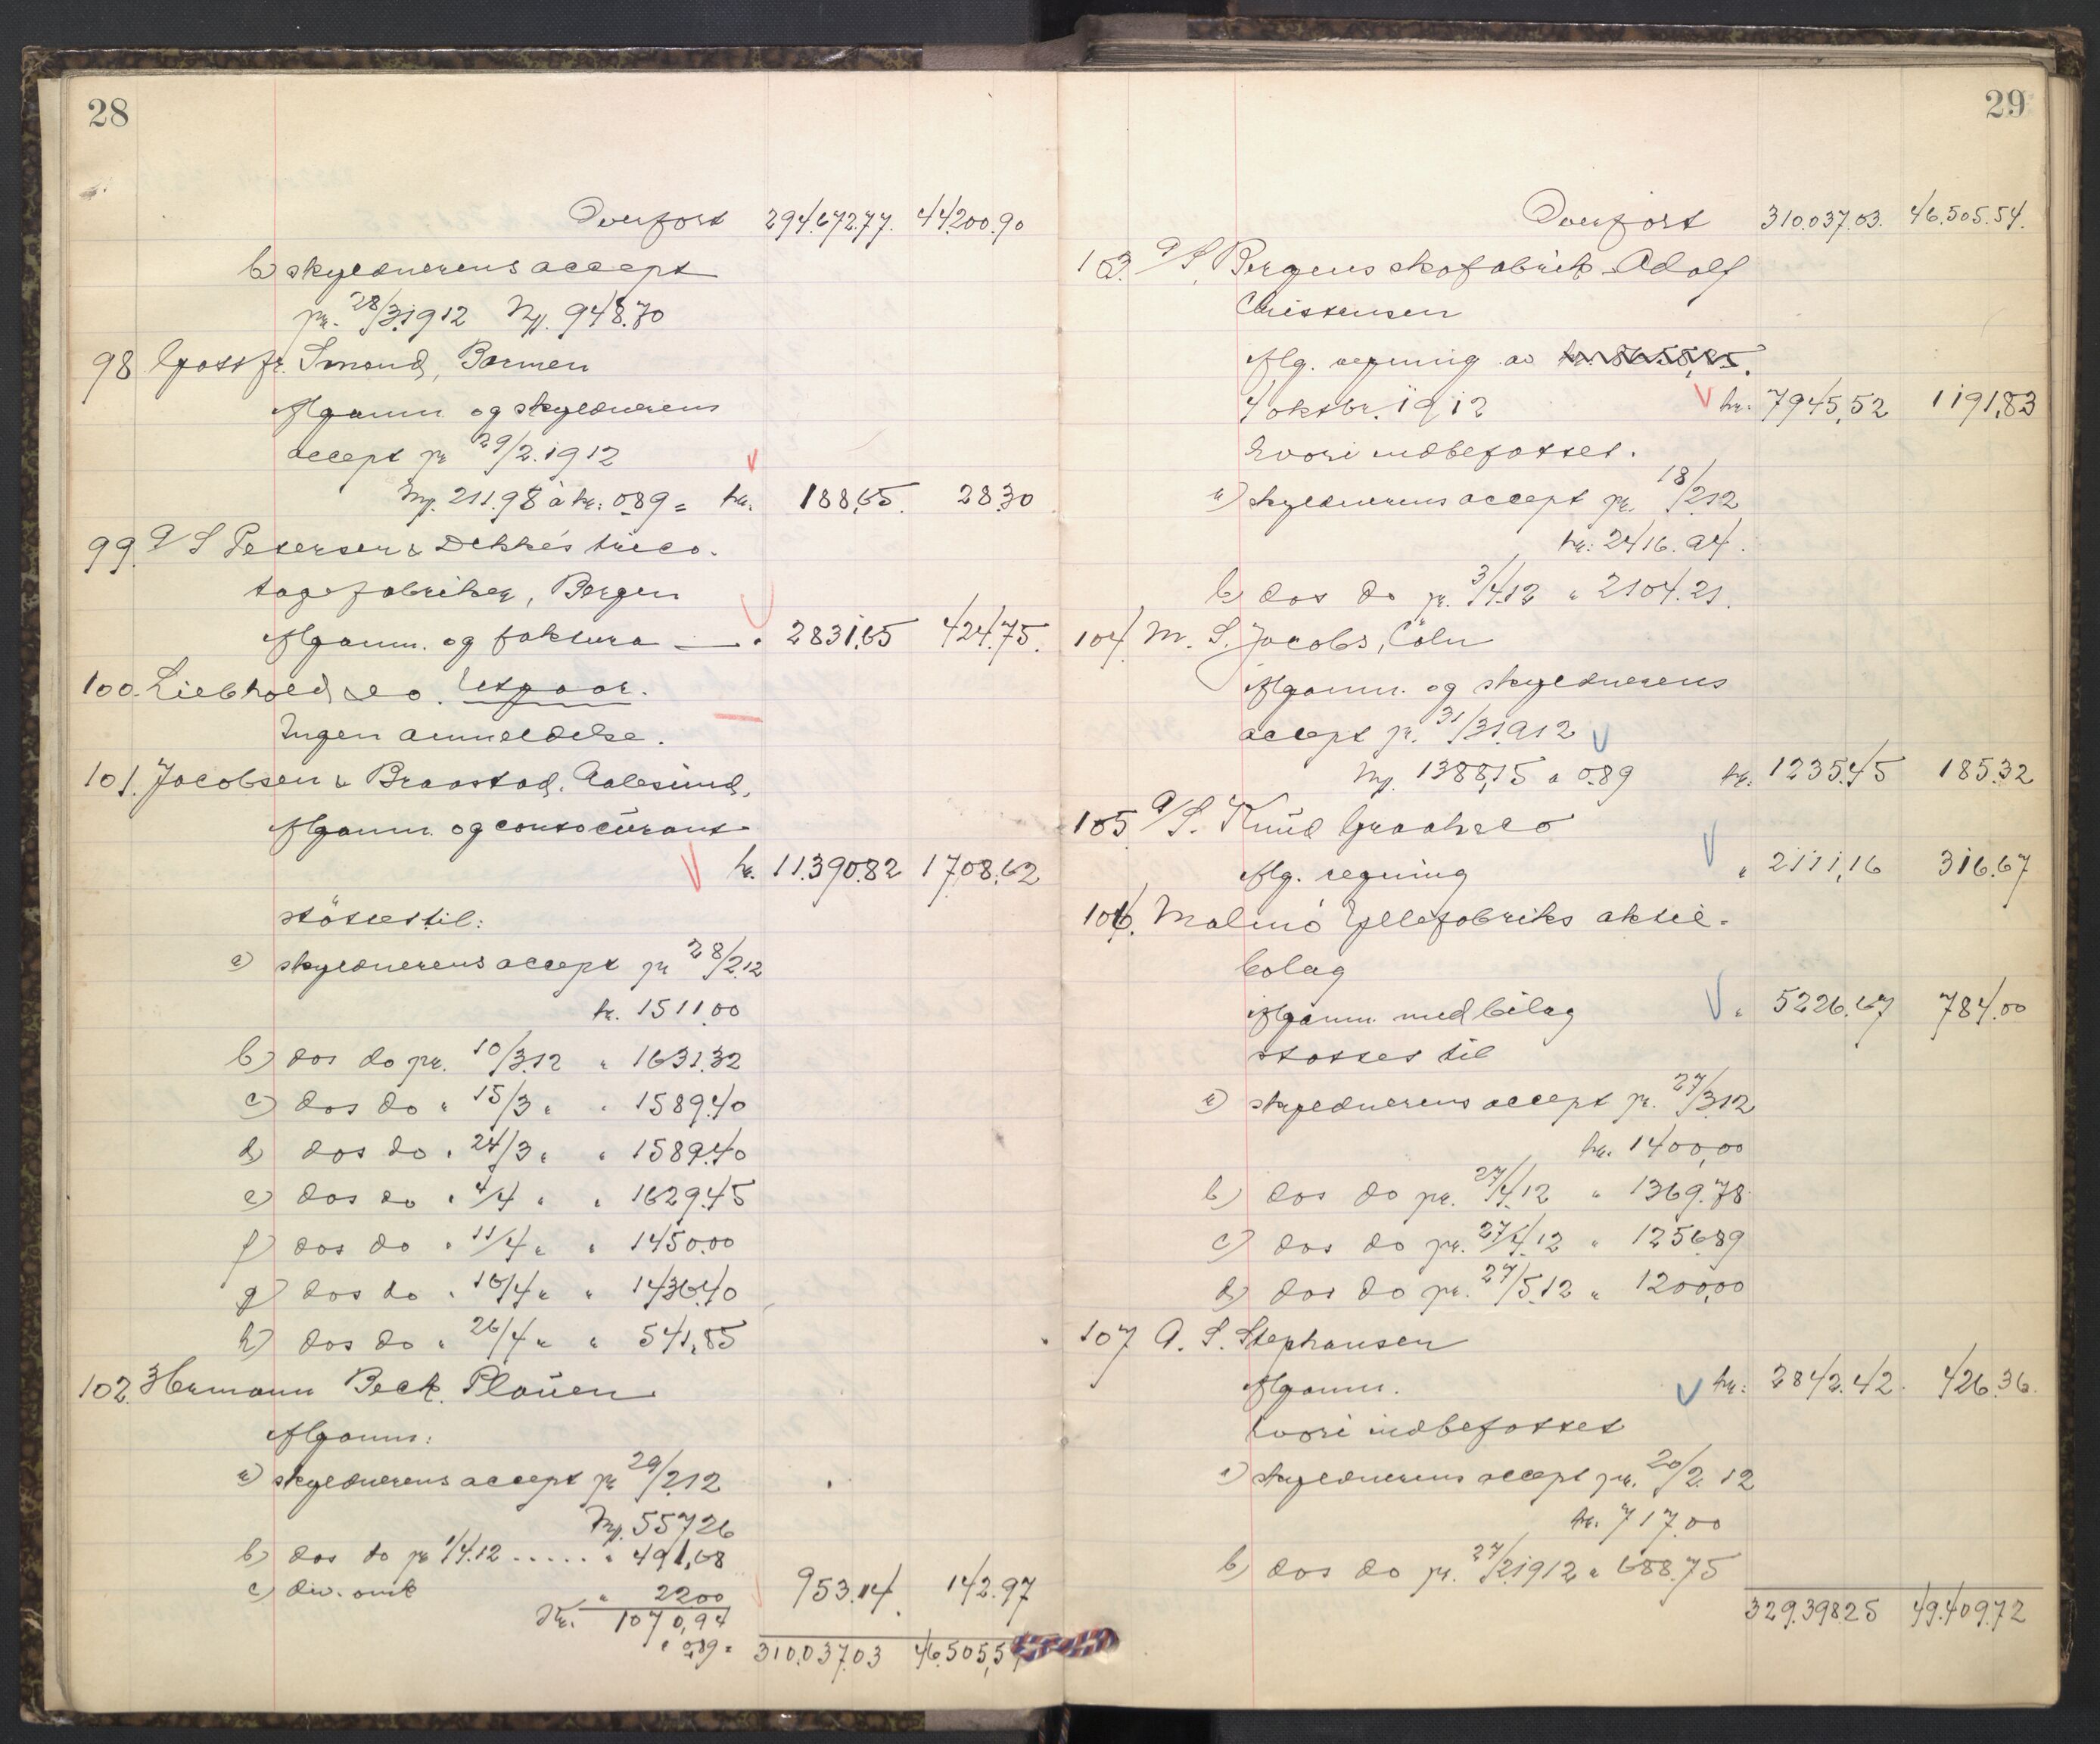 28
Overført 294.672.77. 44.200.90
b) skyldnerens accept
pr. 28/3.1912 Mk. 948.70
98 Gottfr. Smend, Barmen
Afganm. og skyldnerens
accept pr 29/2.1912
Mk. 211.98 à kr: 0.89 = kr. 188,65. 28.30
99. A/S Petersen & Dekkés trico-
tagefabriker, Bergen
Afganm. og faktura — " 2831,65 424.75.
100. Liebhold & Co.
Ingen anmeldelse.
101. Jacobsen & Braastad, Aalesund,
Afganm. og contocurant
kr. 11.390.82 1708,62
støttet til:
a) skyldnerens accept pr 28/2.12
kr. 1511,00
b) dos do pr. 10/3.12 " 1631.32
c) dos do " 15/3 " " 1589.40
d) dos do " 24/3 " " 1589.40
e) dos do " 4/4 " " 1629.45
f) dos do " 11/4 " " 1450.00
g) dos do " 16/4 " " 1436.40
h) dos do " 26/4 " " 541,85
102. Hermann Beck. Plauen
Afganm:
a) skyldnerens accept pr 29/2.12
Mk. 557.26
b) dos do pr 1/4.12 ..... " 491,68
c) div. omk " 22.00 953.14. 142.97
Mk. 1070,94
" 0.89 = 310.037.03 46.505,54
29
Overført 310.037.03. 46.505.54.
103. A/S. Bergens skofabrik Adolf
Christensen
Afg. regning av
4 oktbr. 1912 kr. 7945,52 1191,83
hvori indbefattet.
a) skyldnerens accept pr. 18/2.12
kr: 2416.94.
b) dos do pr. 3/4.12 " 2104.21.
104. M. S. Jacobs, Cöln
Afganm. og skyldnerens
accept pr. 31/3.1912
Mk. 1388,15 a 0.89 kr. 1235.45 185.32
105. A/S. Knud Graah & Co
Afg. regning " 2111,16 316.67
106. Malmö Yllefabriks aktie-
bolag
Afganm. med bilag " 5226.67 784.00
støttet til
a) skyldnerens accept pr. 27/3.12
kr. 1400,00
b) dos do pr. 27/4.12 " 1369.78
c) dos do pr. 27/4.12 " 1256.89
d) dos do pr. 27/5.12 " 1200,00
107 A. S. Stephansen
Afganm. kr: 2842.42. 426.36.
hvori indbefattet
a) skyldnerens accept pr. 20/2.12
kr. 717.00
b) dos do pr. 27/2.1912 " 688.75
329.398.25 49.409.72